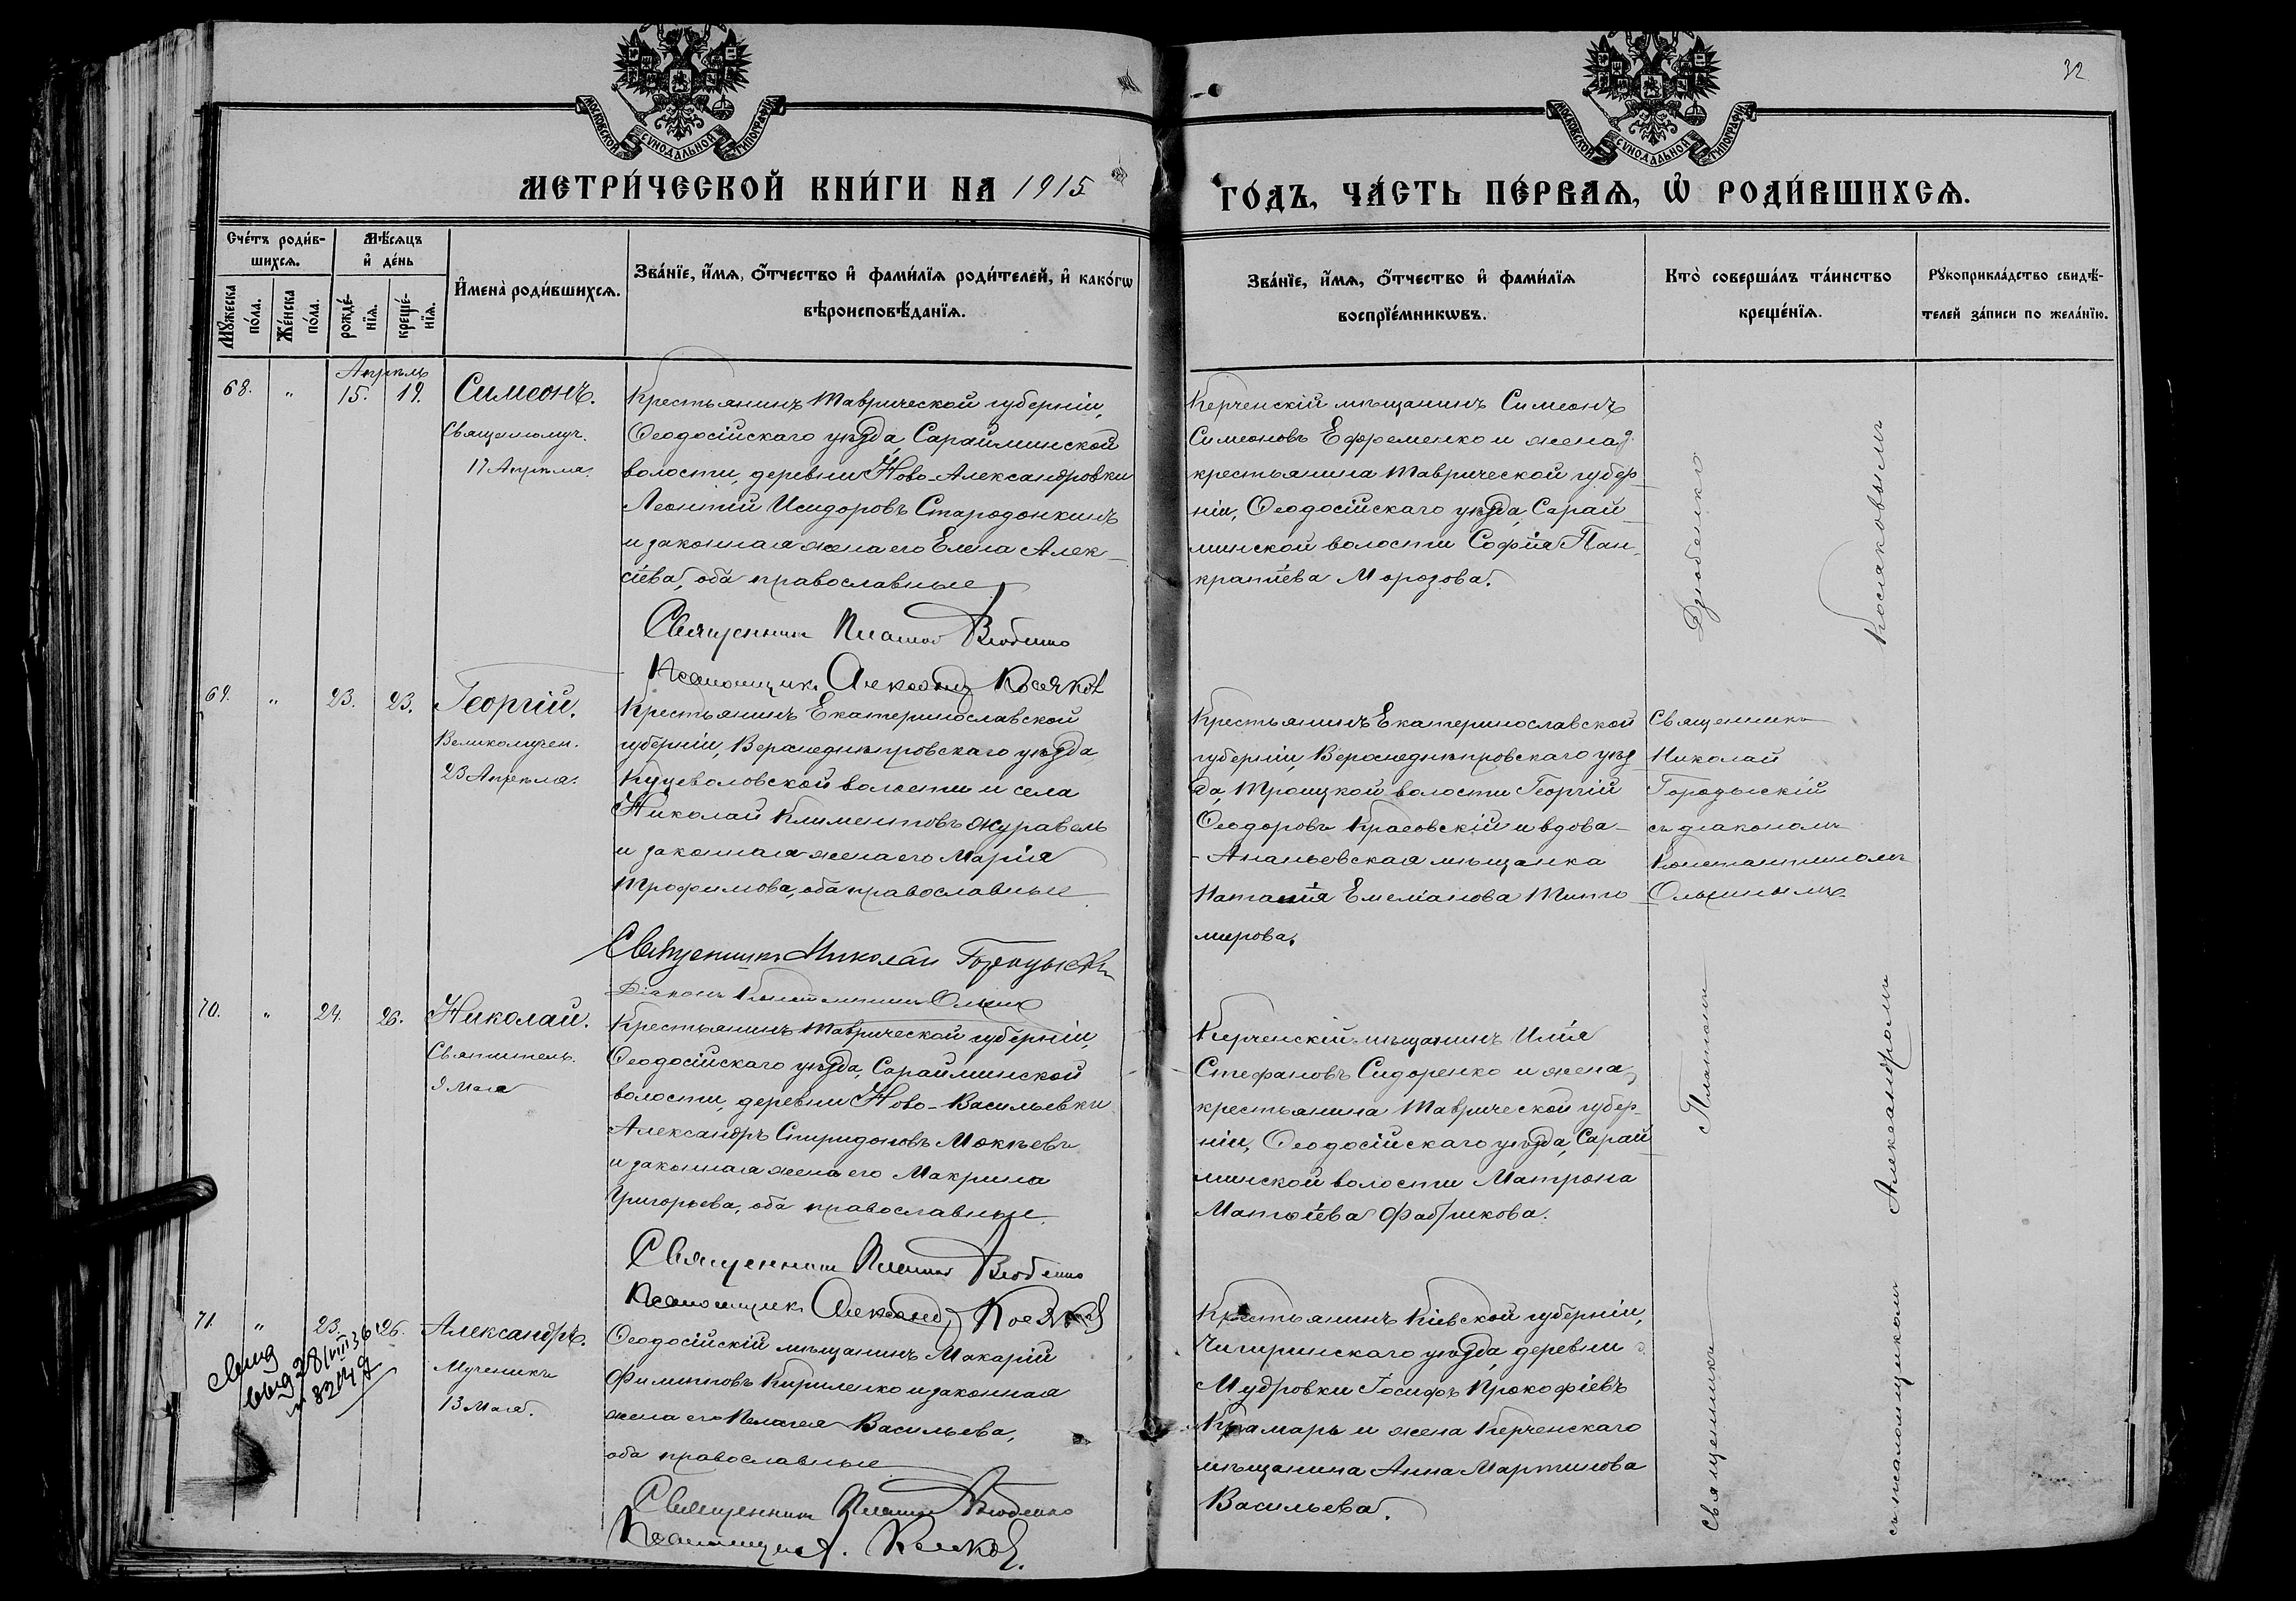 32
МОСКОВСКОЙ СУНОДАЛЬНОЙ ТИПОГРАФІИ
МОСКОВСКОЙ СУНОДАЛЬНОЙ ТИПОГРАФІИ
МЕТРИ́ЧЕСКОЙ КНИ́ГИ НА 1915
ГО́ДЪ, ЧА́СТЬ ПЕ́РВАѦ, Ѡ҆ РОДИ́ВШИХСѦ.
Сче́тъ роди́в-
шихсѧ.
Мѣ́сѧцъ
и҆ де́нь
Мꙋ́жеска
по́ла.
Же́нска
по́ла.
рожде́-
нїѧ.
креще́-
нїѧ.
И҆мена̀ роди́вшихсѧ.
Зва́нїе, и҆́мѧ, ѻ҆́тчество и҆ фами́лїѧ роди́телей, и҆ како́гѡ
вѣроисповѣ́данїѧ.
Зва́нїе, и҆́мѧ, ѻ҆́тчество и҆ фами́лїѧ
воспрїе́мникѡвъ.
Кто̀ соверша́лъ та́инство
креще́нїѧ.
Рꙋкоприкла́дство свидѣ́-
телей за́писи по жела́нїю.
Апрѣль
68. " 15. 19. Симеонъ.
Священномуч.
17 Апрѣля.
Крестьянинъ Таврической губерніи,
Ѳеодосійскаго уѣзда, Сарайминской
волости, деревни Ново-Александровки
Леонтій Исидоровъ Стародонкинъ
и законная жена его Елена Алек-
сіева, оба православные
Священник Платон Дзюбенко
Псаломщик Александр Косяков
Керченскій мѣщанинъ Симеонъ
Симеоновъ Ефременко и жена
крестьянина Таврической губер-
ніи, Ѳеодосійскаго уѣзда, Сарай-
минской волости Софія Пан-
кратіева Морозова.
69. " 23. 23. Георгій.
Великомучен.
23 Апрѣля.
Крестьянинъ Екатеринославской
губерніи, Верхнеднѣпровскаго уѣзда
Куцеволовской волости и села
Николай Климентовъ Журавель
и законная жена его Марія
Трофимова, оба православные
Священникъ Николай Городыскій
Діаконъ Константинъ
Крестьянинъ Екатеринославской
губерніи, Верхнеднѣпровскаго уѣз-
да, Троицкой волости Георгій
Ѳеодоровъ Красовскій и вдова-
Ананьевская мѣщанка
Наталія Емеліанова Тито-
мирова.
Священникъ
Николай
Городыскій
съ діакономъ
Константиномъ
70. " 24. 26. Николай.
Святитель.
9 Мая
Крестьянинъ Таврической губерніи,
Ѳеодосійскаго уѣзда, Сарайминской
волости, деревни Ново-Васильевки
Александръ Спиридоновъ Мокѣевъ
и законная жена его Макрина
Григорьева, оба православные.
Священник Платон Дзюбенко
Псаломщик Александр Косяков
Керченскій мѣщанинъ Илія
Стефановъ Сидоренко и жена
крестьянина Таврической губер-
ніи, Ѳеодосійскаго уѣзда, Сарай-
минской волости Матрона
Матѳіева Фабрикова.
71. " 23. 26. Александръ.
Мученикъ
13 Мая.
Ѳеодосійскій мѣщанинъ Макарій
Филипповъ Кириленко и законная
жена его Пелагея Васильева,
оба православные
Священник Платон Дзюбенко
Псаломщик А. Косяков.
Крестьянинъ Кіевской губерніи,
Чигиринскаго уѣзда, деревни
Мудровки Іосифъ Прокофіевъ
Крамарь и жена Керченскаго
мѣщанина Анна Мартинова
Васильева.
Священникъ Платонъ Дзюбенко
съ псаломщикомъ Александромъ Косяковымъ